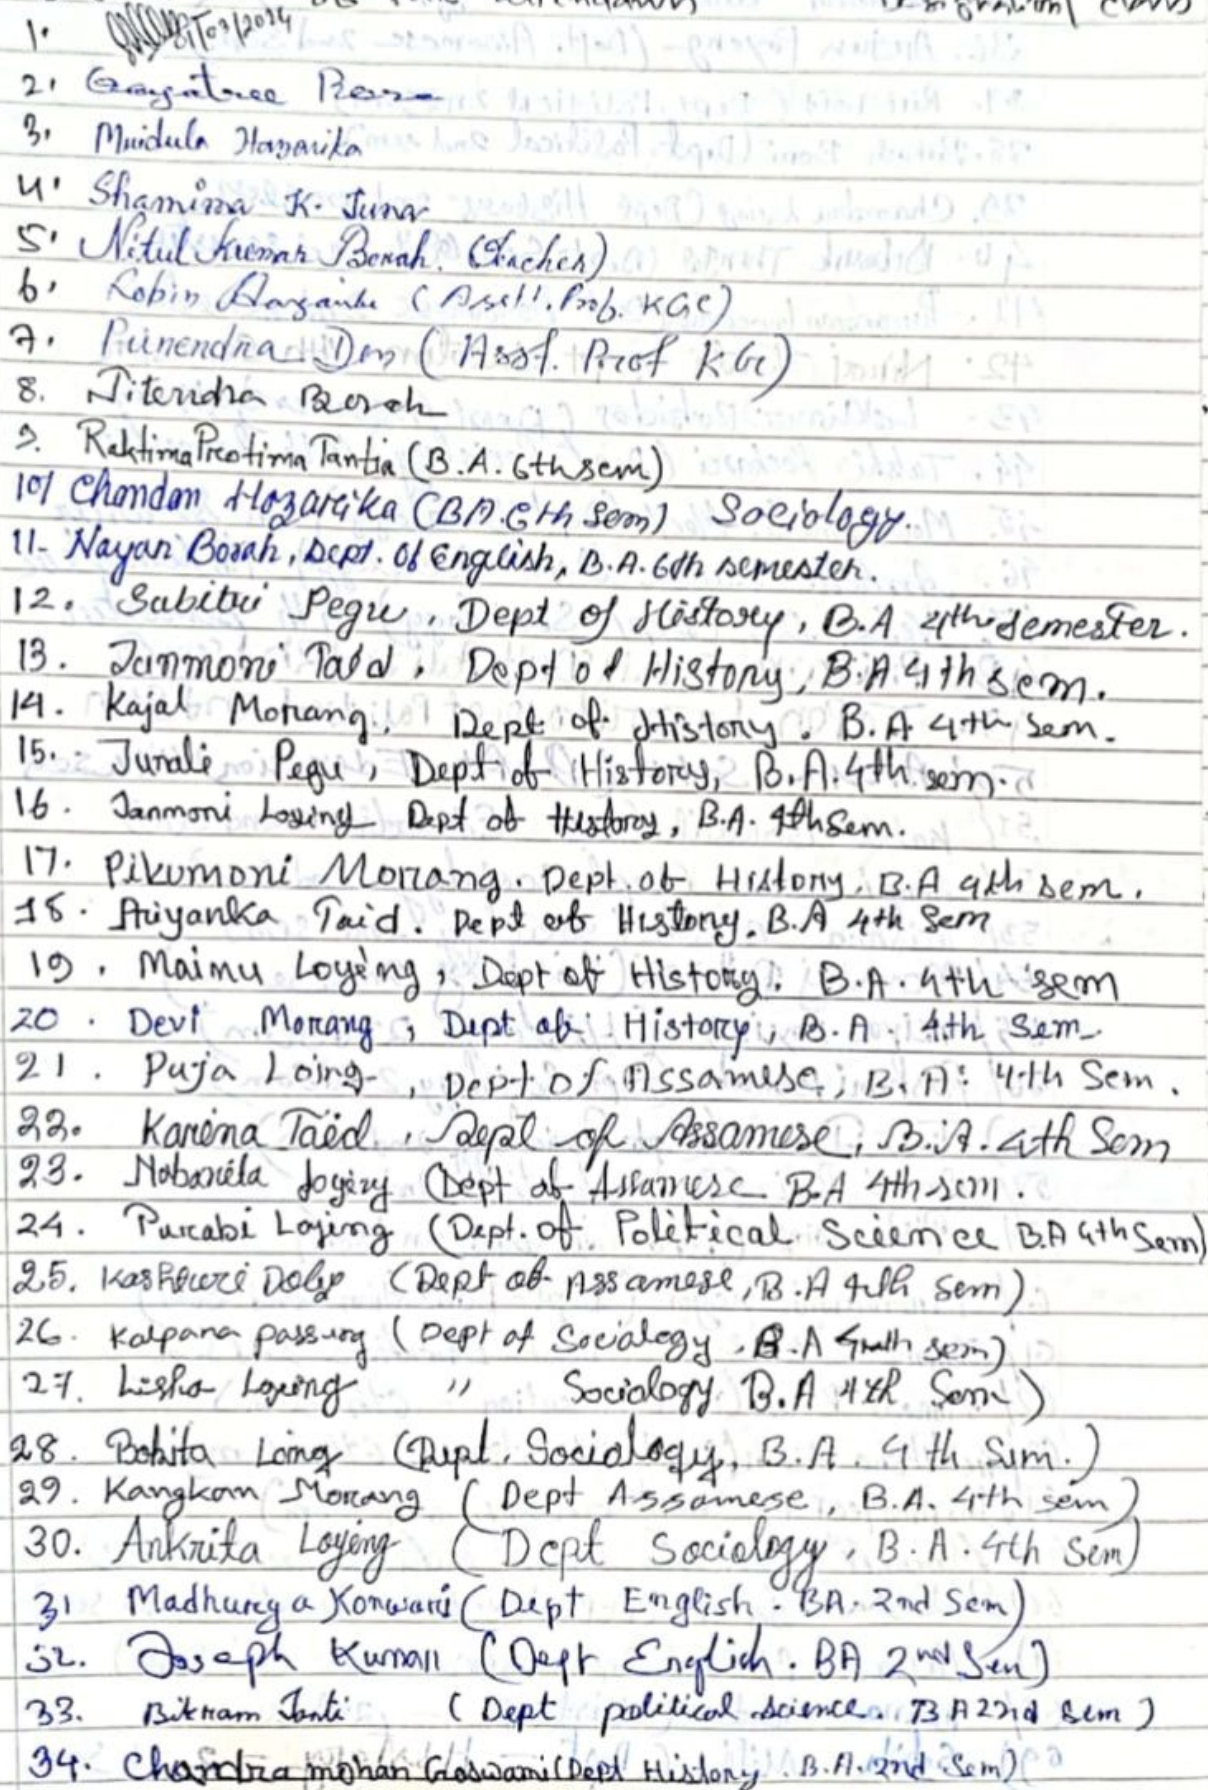 Designation/ Class
1. 07/03/2024
2. Gayatree
3. Mridula Hazarika
4. Shamima K. Juna
5. Nitul Kumar Borah. (Teacher)
6. Robin Hazarika (Asstt. Prof. KGC)
7. Purnendra Den (Asst. Prof KGC)
8. Jitendra Borah
9. Raktima Protima Tantia (B.A. 6th sem)
10/ Chandan Hazarika (BA. 6th Sem) Sociology.
11- Nayan Borah, Dept. Of English, B.A. 6th semester.
12. Sabitri Pegu, Dept of History, B.A 4th semester.
13. Janmoni Taid, Dept of History, B.A 4th sem.
14. Kajal Morang, Dept of History. B.A 4th sem.
15. Junali Pegu, Dept of History, B.A. 4th sem.
16. Janmoni Loying Dept of History, B.A. 4th Sem.
17. Pikumoni Morrang. Dept. of History. B.A 4th sem.
18. Priyanka Taid. Dept of History, B.A 4th Sem
19. Mainu Loying, Dept of History. B.A. 4th sem
20. Devi Morang, Dept of History, B.A. 4th Sem
21. Puja Loing, Dept of Assamese, B.A. 4th Sem.
22. Karina Taid, Dept of Assamese, B.A. 4th Sem
23. Nabanita Loying (Dept of Assamese B.A 4th sem.
24. Purabi Loying (Dept. of Political Science B.A 4th Sem)
25. Kashturi Doley (Dept of Assamese, B.A 4th sem)
26. Kalpana Passing (Dept of Sociology. B.A 4th sem)
27. Lisha Loying " Sociology B.A 4th Sem)
28. Bobita Loing (Dept. Sociology, B.A 4th Sem.)
29. Kangkan Morang (Dept Assamese, B.A. 4th sem)
30. Ankrita Loying (Dept Sociology, B.A. 4th Sem)
31 Madhurya Konwar (Dept English. BA. 2nd Sem)
32. Joseph Kumar (Dept English. BA 2nd Sem)
33. Bikram Tanti (Dept political science BA 2nd sem)
34. Chandra mohan Goswami (Dept History. B.A. 2nd Sem)